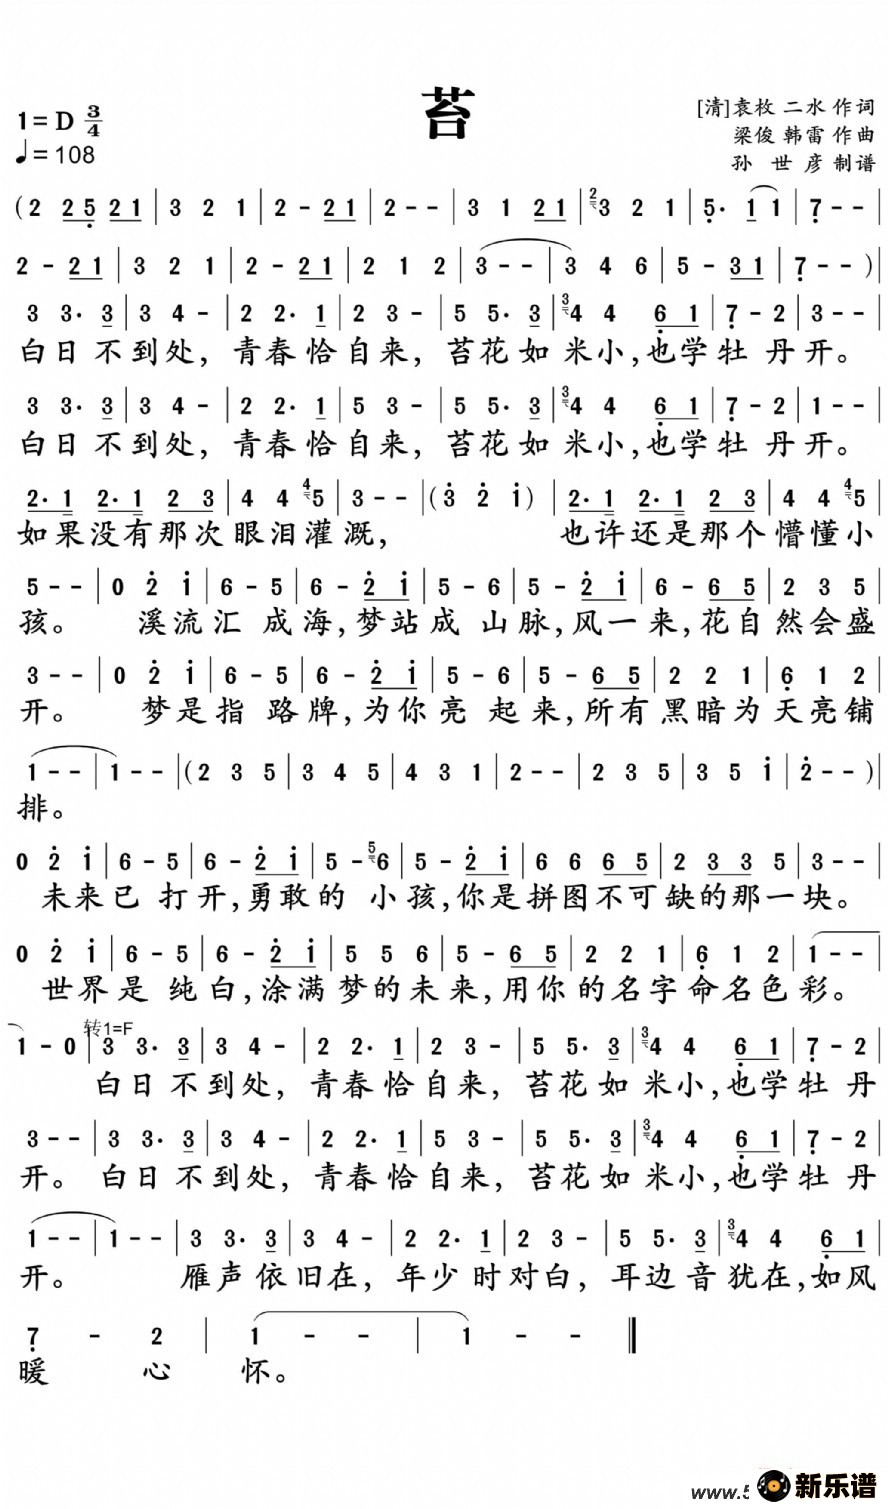 苔
1=D 3/4
♩=108
[清]袁枚 二水 作词
梁俊 韩雷 作曲
孙 世 彦 制谱
(2 2 5 2 1 | 3 2 1 | 2 - 2 1 | 2 - - | 3 1 2 1 | 2 3 2 1 | 5· 1 1 | 7 - - |
2 - 2 1 | 3 2 1 | 2 - 2 1 | 2 1 2 | 3 - - | 3 4 6 | 5 - 3 1 | 7 - - )|
3 3· 3 | 3 4 - | 2 2· 1 | 2 3 - | 5 5· 3 | 3 4 4 6 1 | 7 - 2 | 3 - - |
白日 不到处, 青春恰自来, 苔花如米小,也学牡 丹开。
3 3· 3 | 3 4 - | 2 2· 1 | 5 3 - | 5 5· 3 | 3 4 4 6 1 | 7 - 2 | 1 - - |
白日 不到处, 青春恰自来, 苔花如米小,也学牡 丹开。
2· 1 2· 1 2 3 | 4 4 4 5 | 3 - - |(3 2 1)| 2· 1 2· 1 2 3 | 4 4 4 5 |
如果没有那次眼泪灌溉, 也许还是那个懵懂小
5 - - | 0 2 1 | 6 - 5 | 6 - 2 1 | 5 - 6 | 5 - 2 1 | 6 - 6 5 | 2 3 5 |
孩。 溪流汇 成海,梦站成 山脉,风一来,花自然会盛
3 - - | 0 2 1 | 6 - 5 | 6 - 2 1 | 5 - 6 | 5 - 6 5 | 2 2 1 | 6 1 2 |
开。 梦是指 路牌,为你亮 起来,所有黑暗为天亮铺
1 - - | 1 - - |(2 3 5 | 3 4 5 | 4 3 1 | 2 - - | 2 3 5 | 3 5 1 | 2 - - )|
排。
0 2 1 | 6 - 5 | 6 - 2 1 | 5 - 5 6 | 5 - 2 1 | 6 6 6 5 | 2 3 3 5 | 3 - - |
未来已 打开,勇敢的 小孩,你是拼图不可缺的那一块。
0 2 1 | 6 - 5 | 6 - 2 1 | 5 5 6 | 5 - 6 5 | 2 2 1 | 6 1 2 | 1 - - |
世界是 纯白,涂满梦的未来,用你的名字命名色彩。
转1=F
1 - 0 | 3 3· 3 | 3 4 - | 2 2· 1 | 2 3 - | 5 5· 3 | 3 4 4 6 1 | 7 - 2 |
白日 不到处, 青春恰自来, 苔花如米小,也学牡 丹
3 - - | 3 3· 3 | 3 4 - | 2 2· 1 | 5 3 - | 5 5· 3 | 3 4 4 6 1 | 7 - 2 |
开。 白日 不到处, 青春恰自来, 苔花如米小,也学牡 丹
1 - - | 1 - - | 3 3· 3 | 3 4 - | 2 2· 1 | 2 3 - | 5 5· 3 | 3 4 4 6 1 |
开。 雁声依旧在, 年少时对白, 耳边音犹在,如风
7 - 2 | 1 - - | 1 - - ‖
暖 心 怀。
www.5
新乐谱